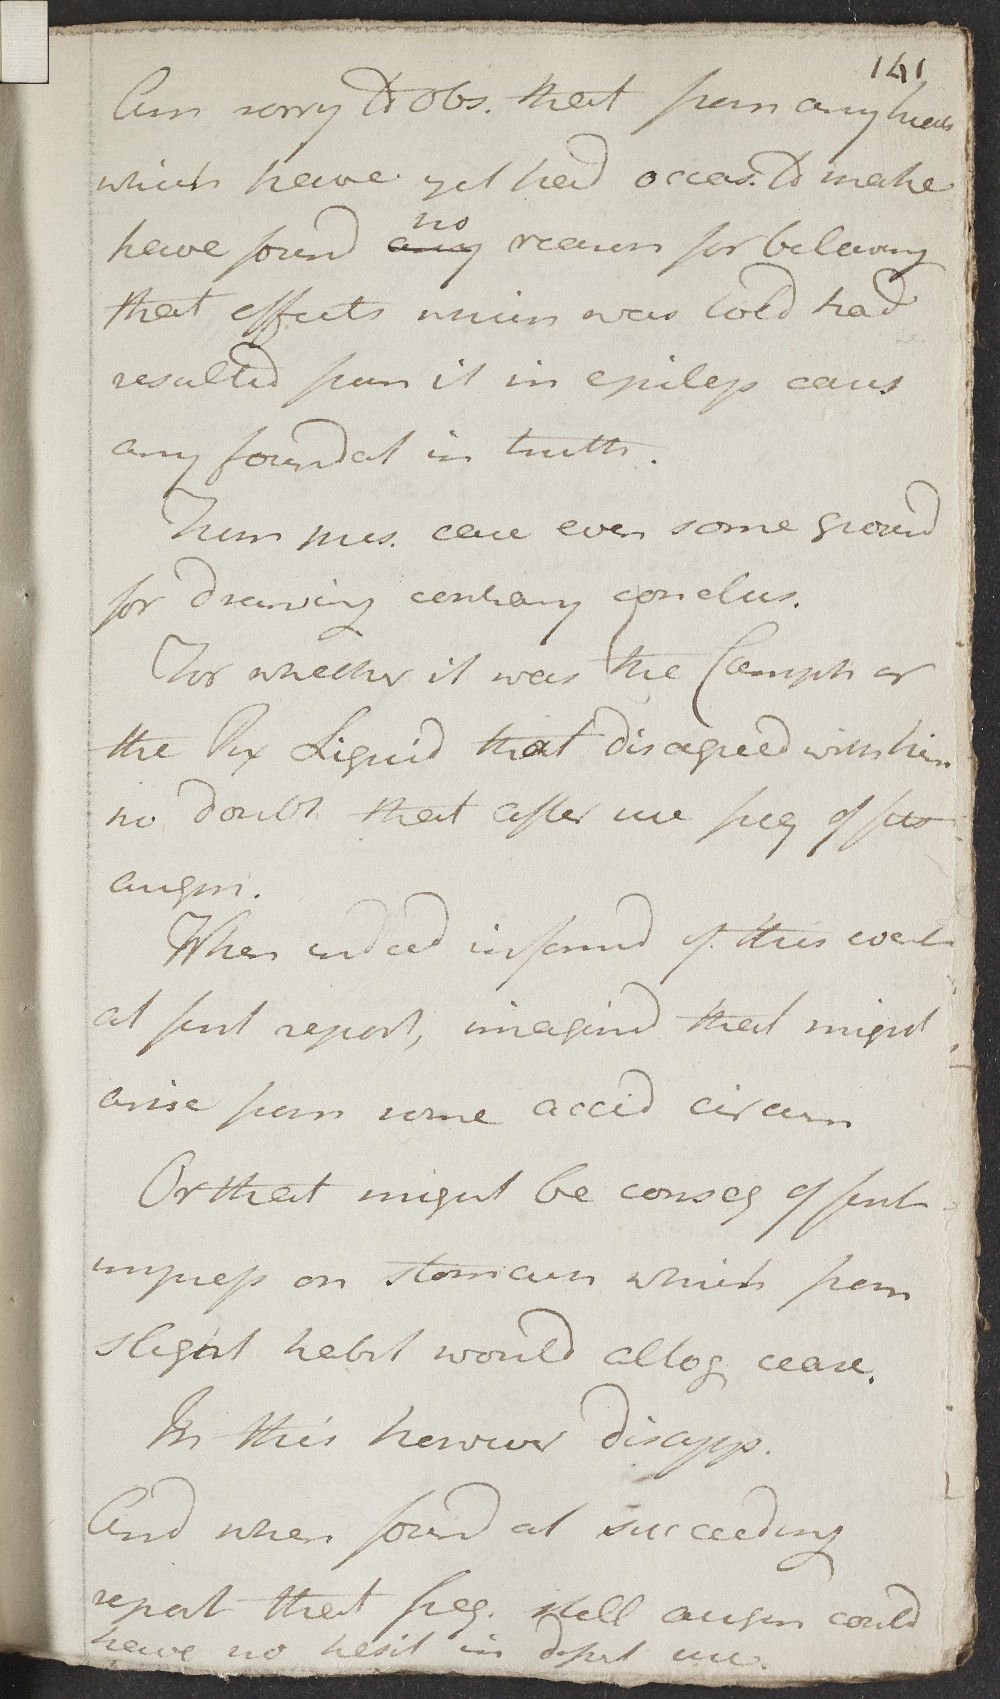 141
Am sorry to obs. that from any trials
which have yet had occas. to make
have found any no reason for beleaving
that effects which was told had
resulted from it in epilep cases
any foundat in truth.
From pres. case even some ground
for drawing contrary conclus.
For whether it was the Camph or
the Pix Liquid that disagreed with him
no doubt that after use freq of fits
augm.
When indeed informd of this event
at first report, imagind that might
arise from some accid circum
Or that might be conseq of first
impress on stomach which from
slight habit would altog cease.
In this however disapp.
And when found at succeeding
report that freq. still augm could
have no hesit in dsert use.